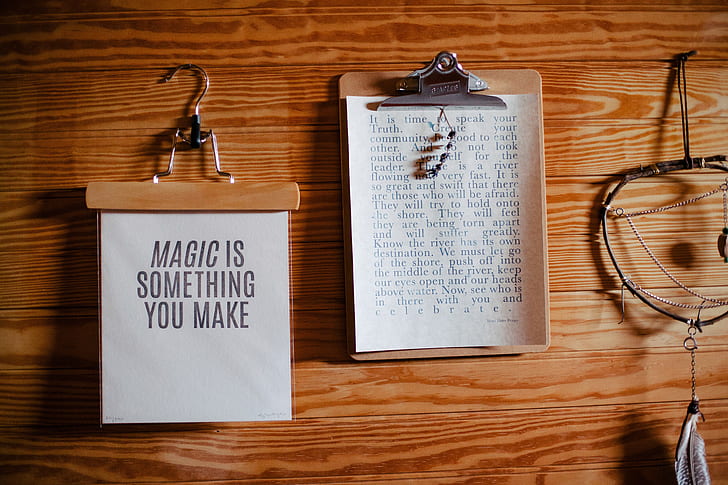 MAGIC IS
SOMETHING
YOU MAKE
It is time to speak your
Truth. Create your
community. be good to each
other. And do not look
outside yourself for the
leader. This is a river
flowing very fast. It is
so great and swift that there
are those who will be afraid.
They will try to hold onto
the shore. They will feel
they are being torn apart
and will suffer greatly.
Know the river has its own
destination. We must let go
of the shore, push off into
the middle of the river, keep
our eyes open and our heads
above water. Now, see who is
in there with you and
celebrate.